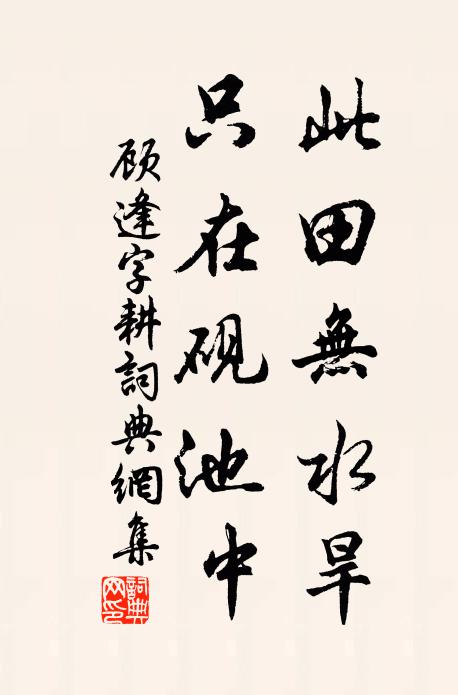 此田無水旱
只在硯池中
顾逢字耕詞典網集
詞典
网印